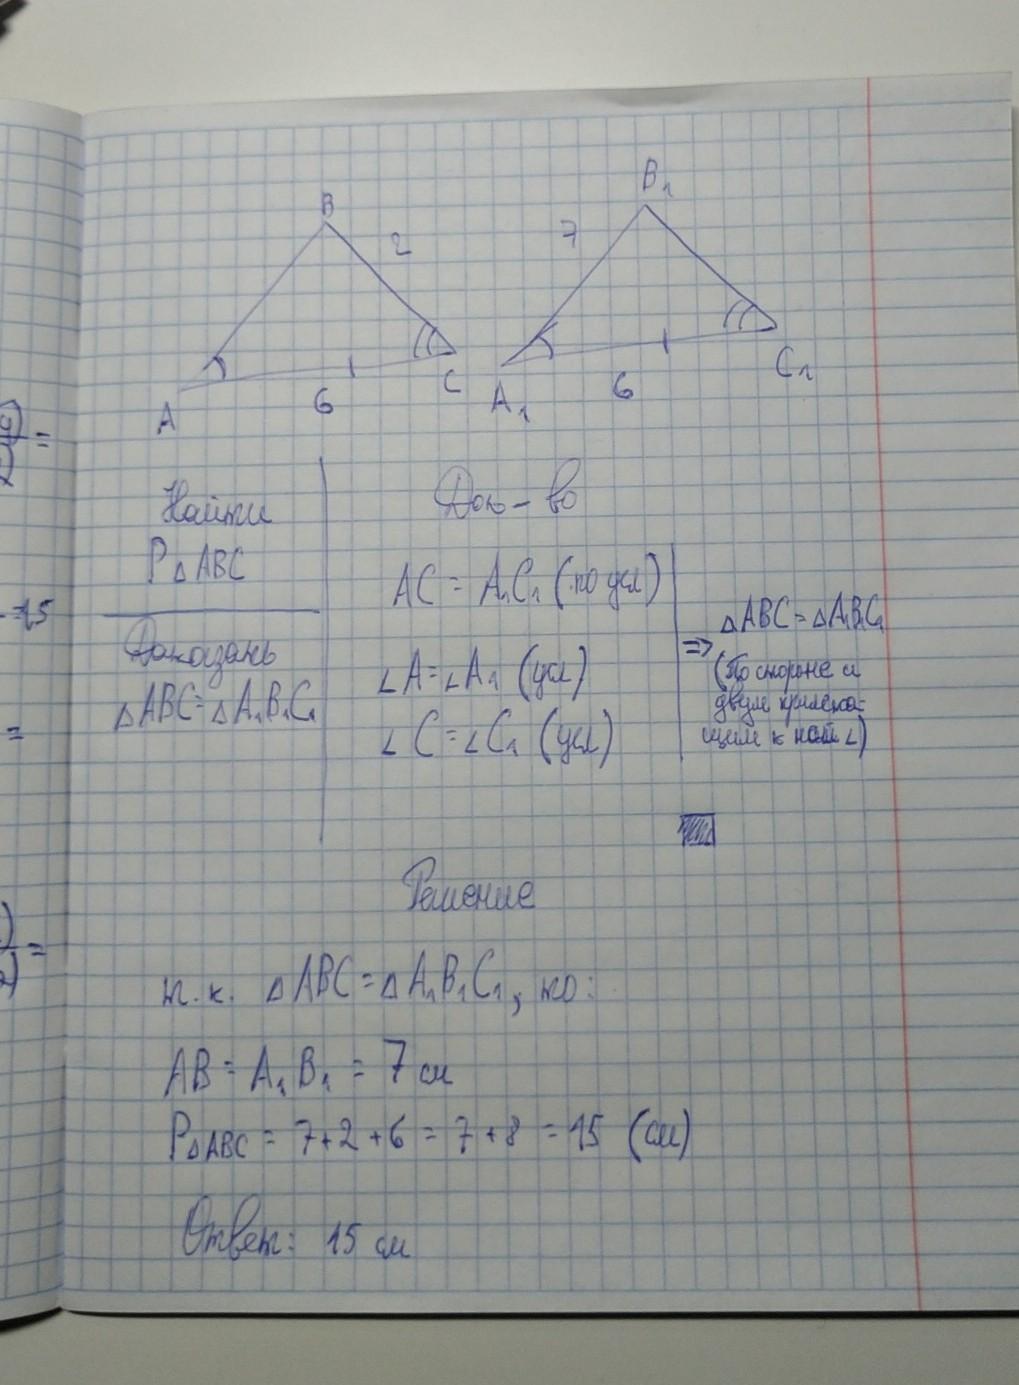 B
B₁
2
7
A
6
C
A₁
6
C₁
Найти
P△ABC
Доказать
△ABC=△A₁B₁C₁
Док-во
AC = A₁C₁ (по усл)
∠A=∠A₁ (усл)
∠C=∠C₁ (усл)
=> △ABC=△A₁B₁C₁
(По стороне и
двум прилежа-
щим к ней ∠)
Решение
т.к. △ABC=△A₁B₁C₁, то:
AB = A₁B₁ = 7 см
P△ABC = 7+2+6 = 7+8 = 15 (см)
Ответ: 15 см
=
=15
=
=